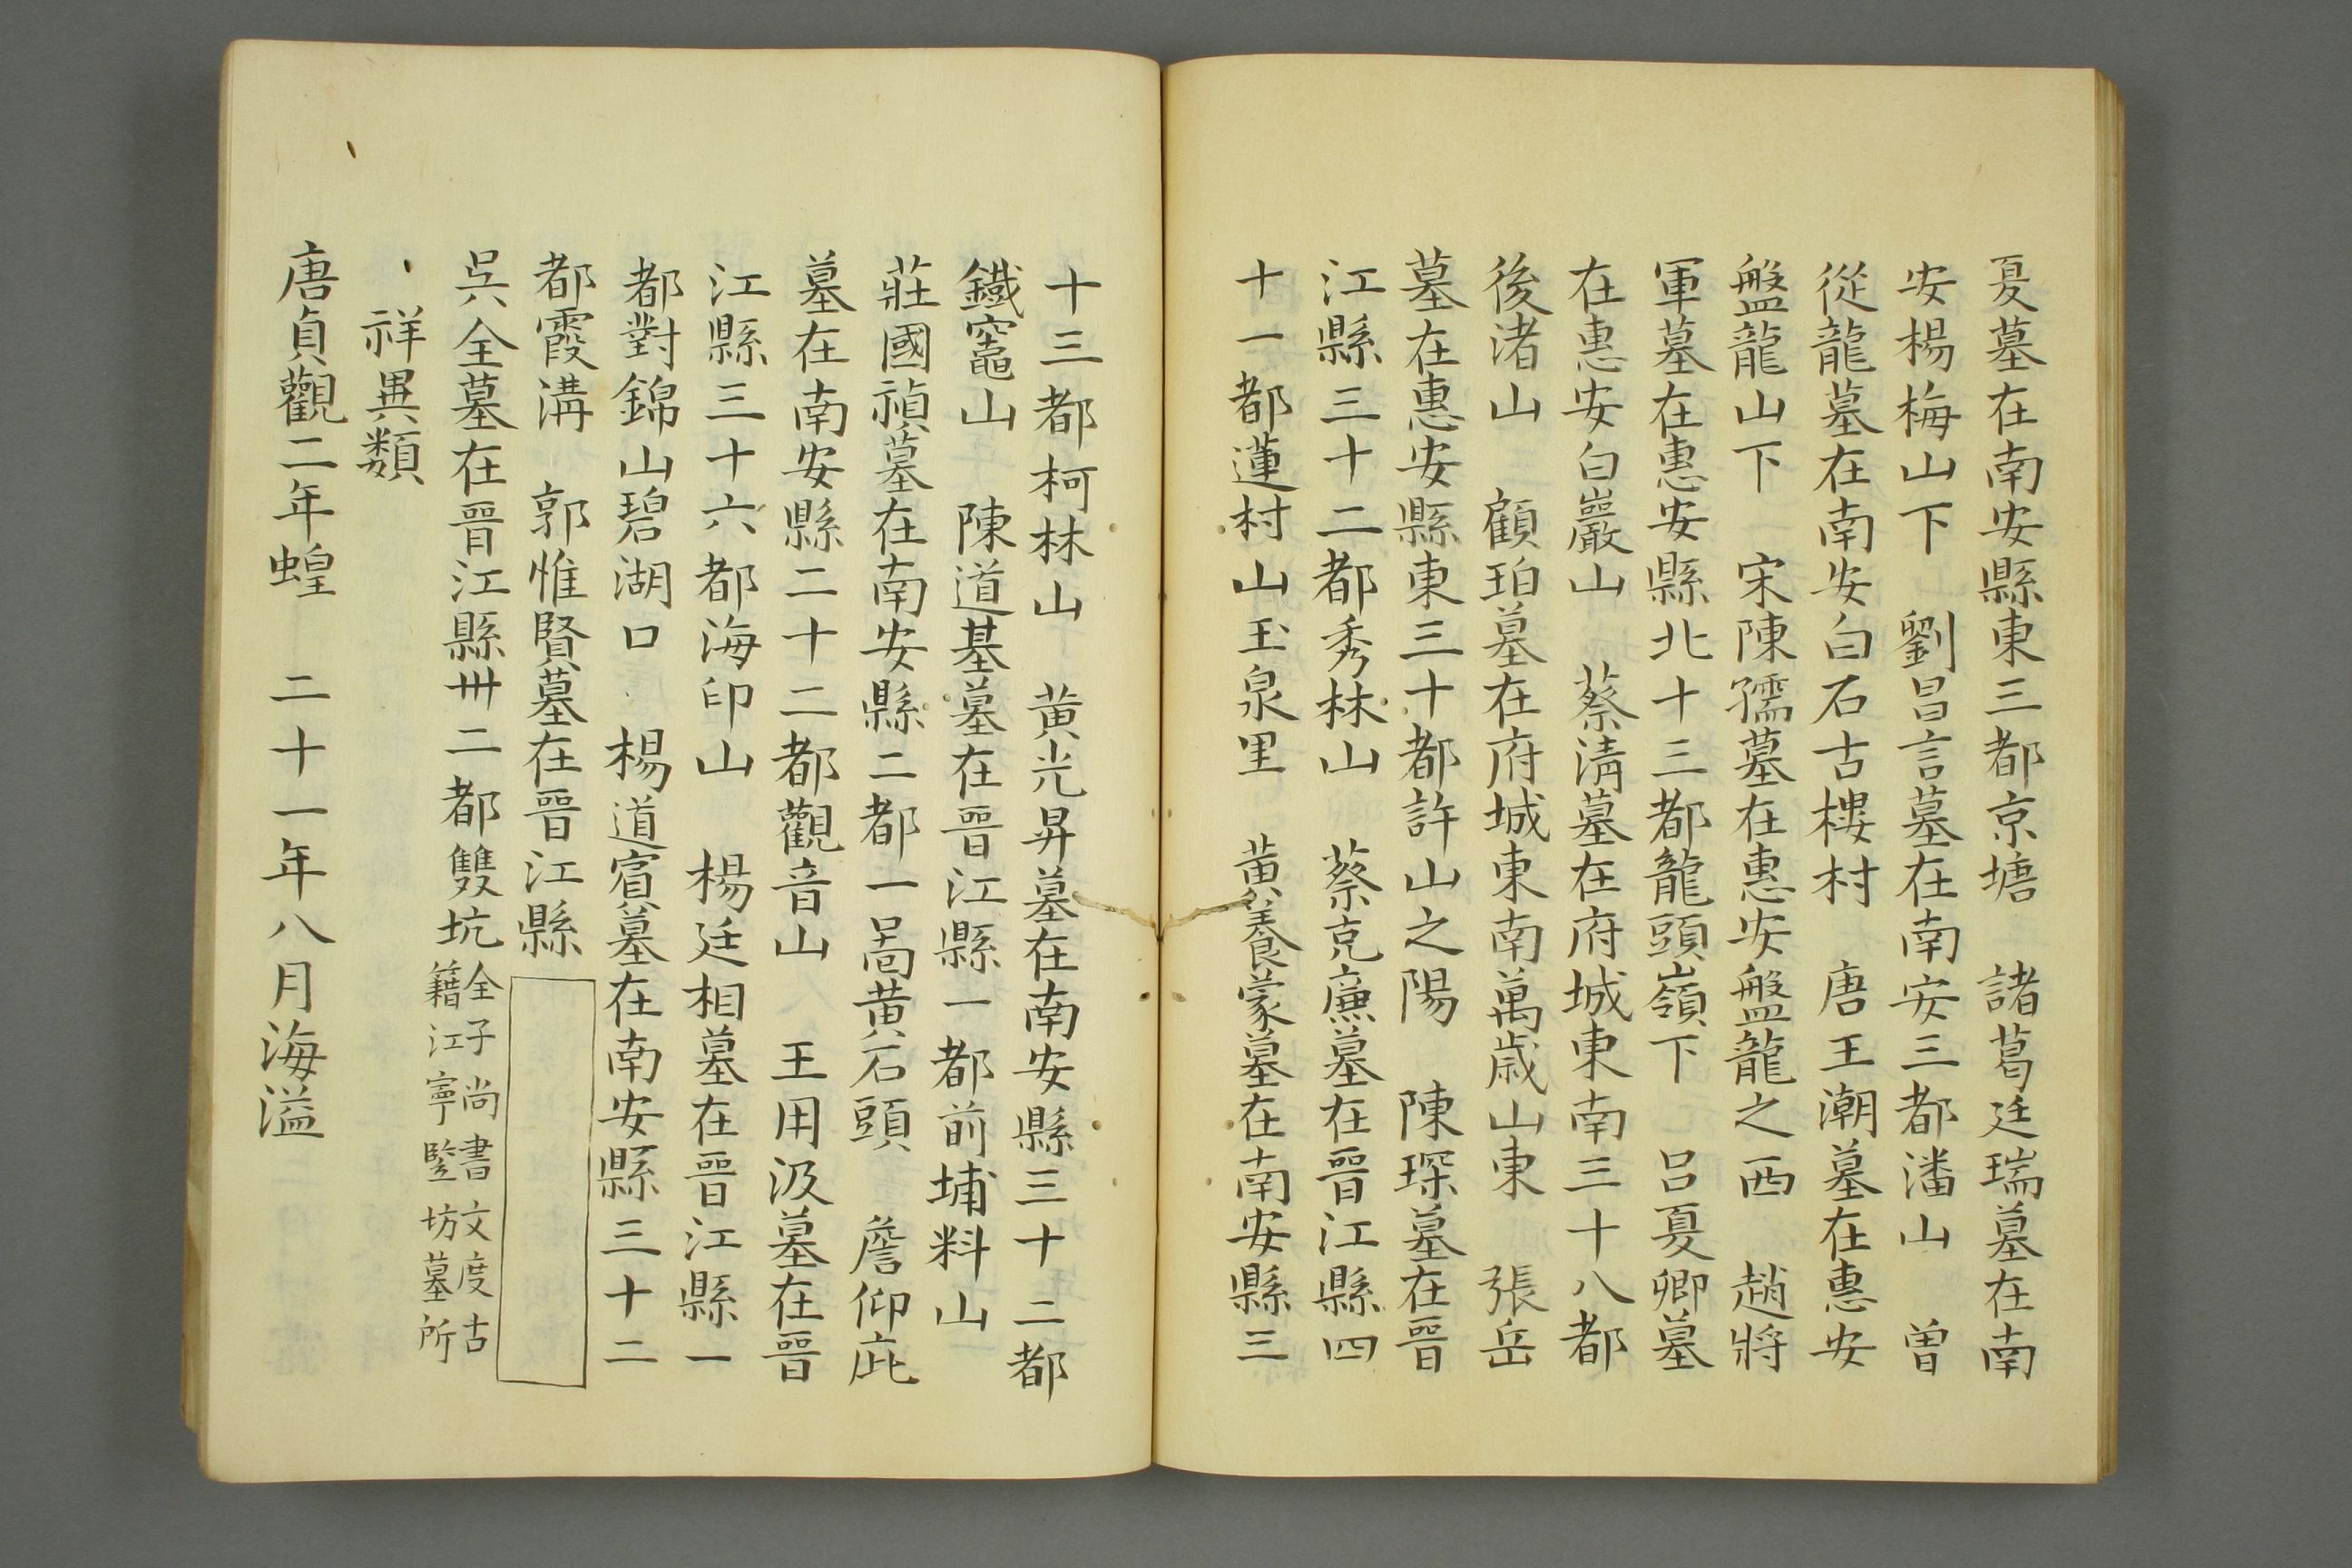 夏墓在南安縣東三都京塘　諸葛廷瑞墓在南
安楊梅山下　劉昌言墓在南安三都潘山　曾
從龍墓在南安白石古樓村　唐王潮墓在惠安
盤龍山下　宋陳孺墓在惠安盤龍之西　趙將
軍墓在惠安縣北十三都龍頭嶺下　呂夏卿墓
在惠安白巖山　蔡清墓在府城東南三十八都
後渚山　顧珀墓在府城東南萬歲山東　張岳
墓在惠安縣東三十都許山之陽　陳琛墓在晉
江縣三十二都秀林山　蔡克廉墓在晉江縣四
十一都蓮村山玉泉里　黃養蒙墓在南安縣三
十三都柯林山　黃光昇墓在南安縣三十二都
鐵竈山　陳道基墓在晉江縣一都前埔料山
莊國禎墓在南安縣二都一啚黃石頭　詹仰庇
墓在南安縣二十二都觀音山　王用汲墓在晉
江縣三十六都海印山　楊廷相墓在晉江縣一
都對錦山碧湖口　楊道賓墓在南安縣三十二
都霞溝　郭惟賢墓在晉江縣
吳全墓在晉江縣卅二都雙坑全子尚書文度古
籍江寧竪坊墓所
祥異類
唐貞觀二年蝗　二十一年八月海溢